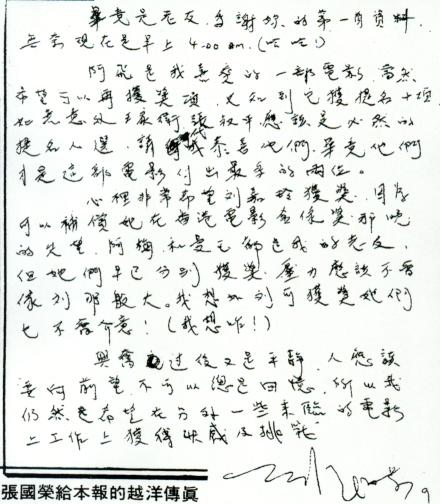 畢竟是老友,多謝妳的第一肯資料,
無奈現在是早上 4.00 a.m. (哈哈!)
阿飛是我喜愛的一部電影,當然
希望可以再獲獎項,又知到它獲提名十項,
如無意外王家衛張叔平應該是必然的
提名人選,請代我恭喜他們,畢竟他們
是這部電影付出最多的兩位。
心裡非常希望劉嘉玲獲獎,因為
可以補償她在香港電影金像獎那晚
的失望,阿梅和曼玉都是我的老友,
但她們早已分別獲獎,壓力應該不會
像別那般大。我想如列可獲獎她們
也不會介意!(我想咋!)
興奮過後又是平靜,人應該
要向前望,不可以總是回憶,所以我
仍然是希望在另外一些來臨的電影
上工作上獲得快感及挑戰
張國榮給本報的越洋傳眞